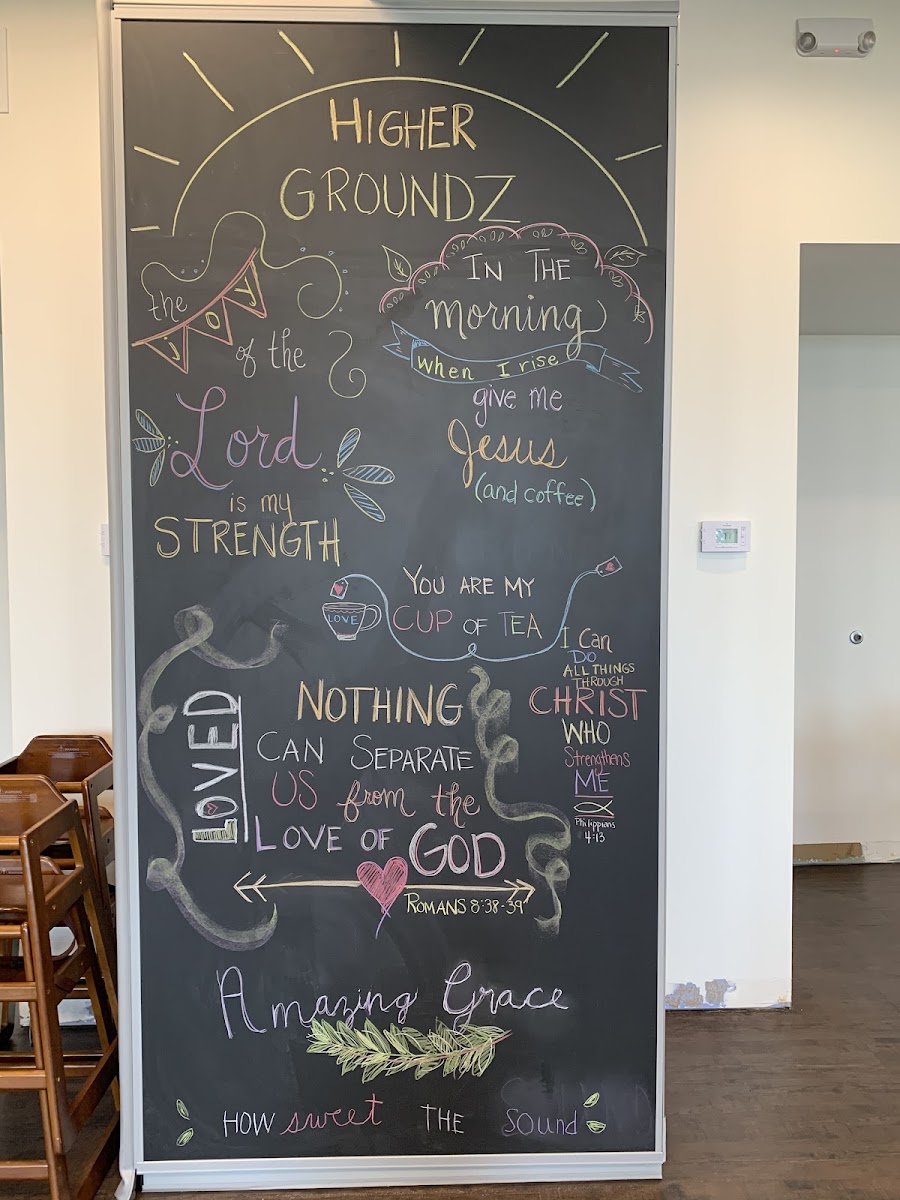 HIGHER
GROUNDZ
the
JOY
of the
Lord
is my
STRENGTH
IN THE
morning
when I rise
give me
Jesus
(and coffee)
YOU ARE MY
CUP OF TEA
LOVE
I Can
DO
ALL THINGS
THROUGH
CHRIST
WHO
Strengthens
ME
Philippians
4:13
LOVED
NOTHING
CAN SEPARATE
US from the
LOVE OF GOD
ROMANS 8:38-39
Amazing Grace
HOW sweet THE sound